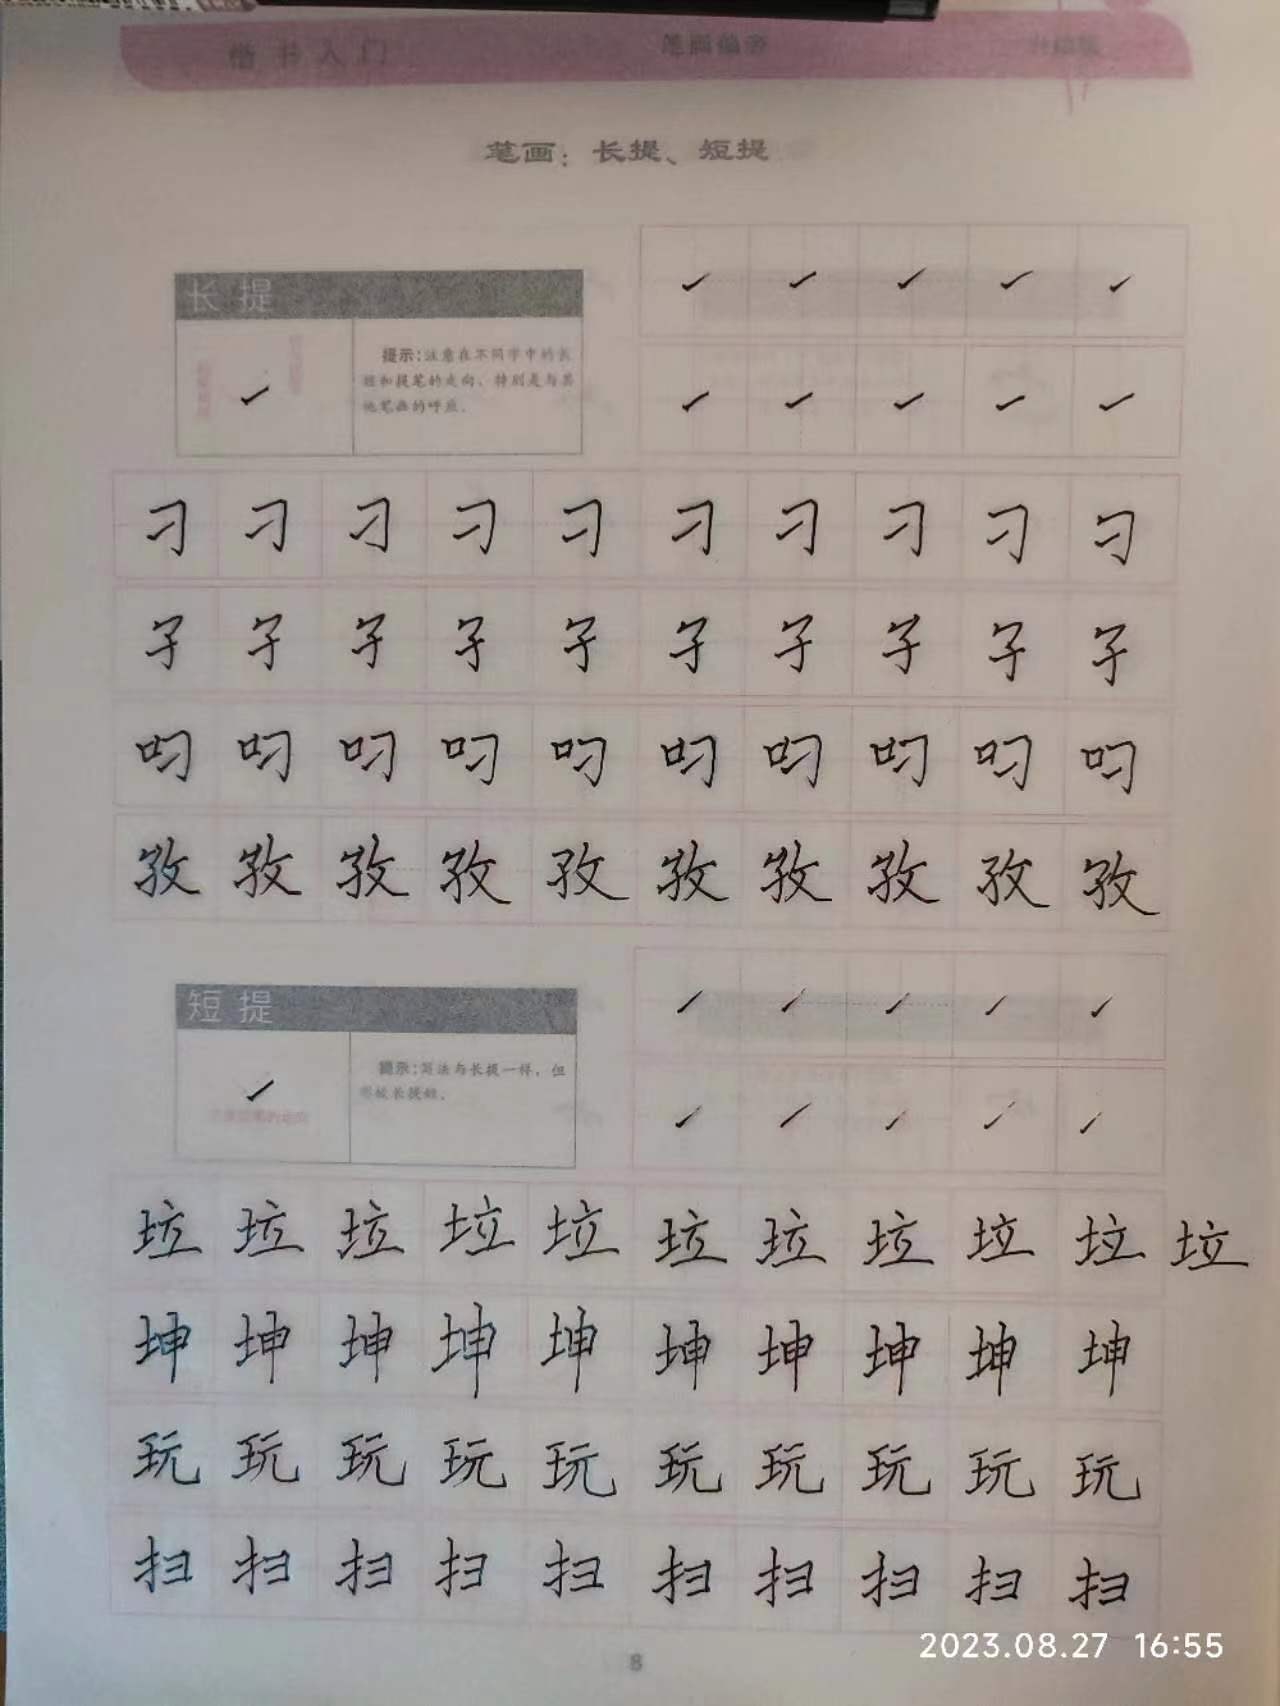 楷书入门
笔画：长提、短提
长提
提示：注意在不同字中的长短和提笔的走向，特别是与其他笔画的呼应。
刁 刁 刁 刁 刁 刁 刁 刁 刁 刁
孑 孑 孑 孑 孑 孑 孑 孑 孑 孑
叼 叼 叼 叼 叼 叼 叼 叼 叼 叼
孜 孜 孜 孜 孜 孜 孜 孜 孜 孜
短提
提示：写法与长提一样，但形较长提短。
垃 垃 垃 垃 垃 垃 垃 垃 垃 垃 垃
坤 坤 坤 坤 坤 坤 坤 坤 坤 坤
玩 玩 玩 玩 玩 玩 玩 玩 玩 玩
扫 扫 扫 扫 扫 扫 扫 扫 扫 扫
8
2023.08.27 16:55